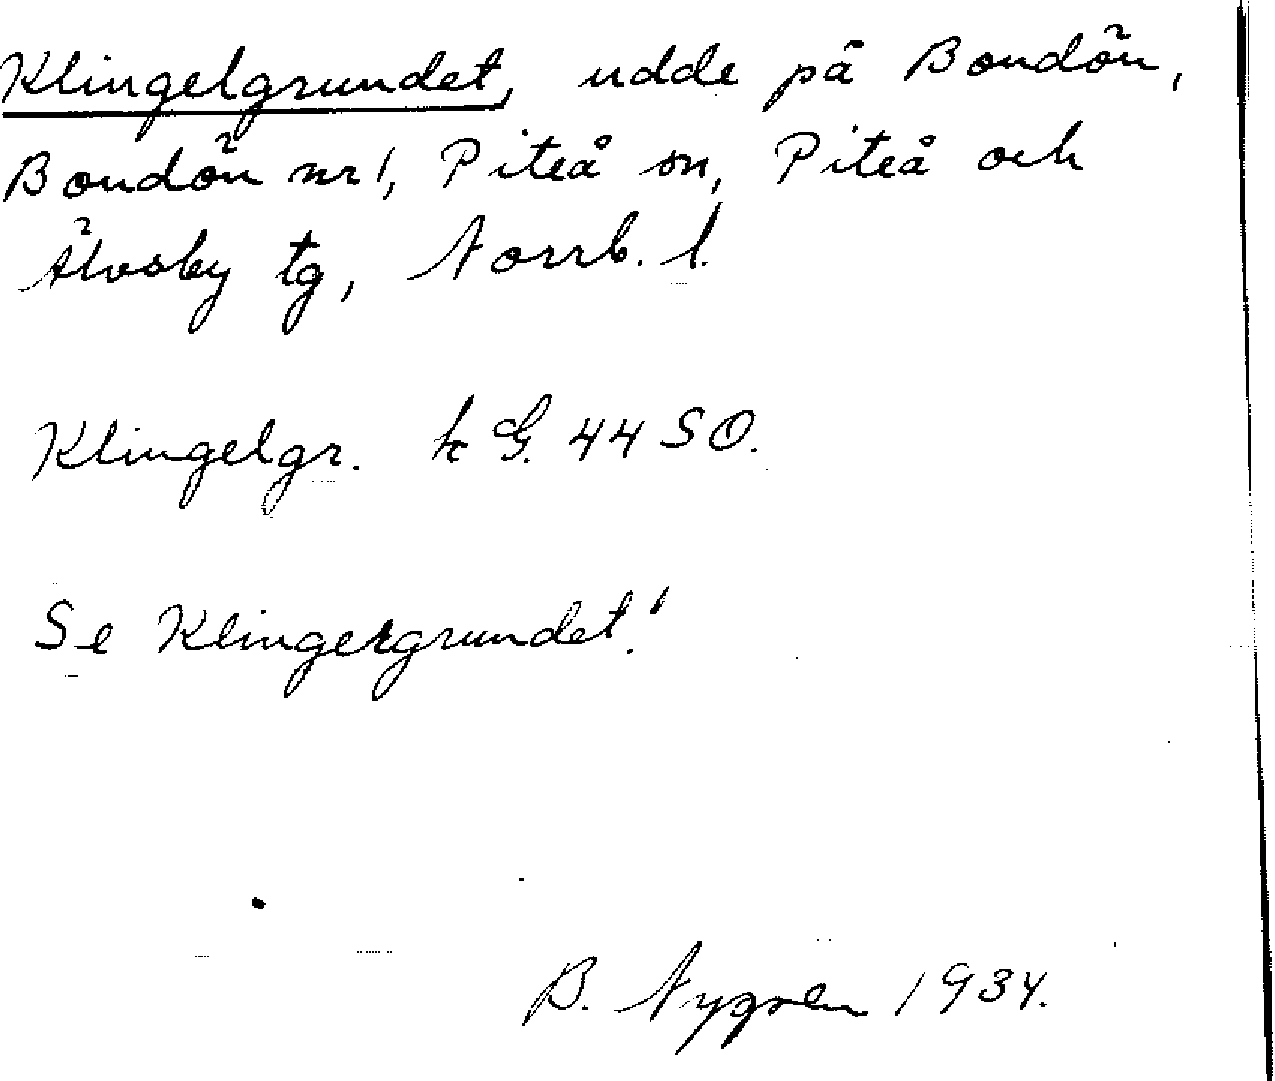 Klingelgrundet, udde på Bondön,
Bondön nr 1, Piteå sn, Piteå och
Älvsby tg, Norrb. l.
Klingelgr. k G. 44 SO.
Se Klingergrundet!
B. Nygren 1934.